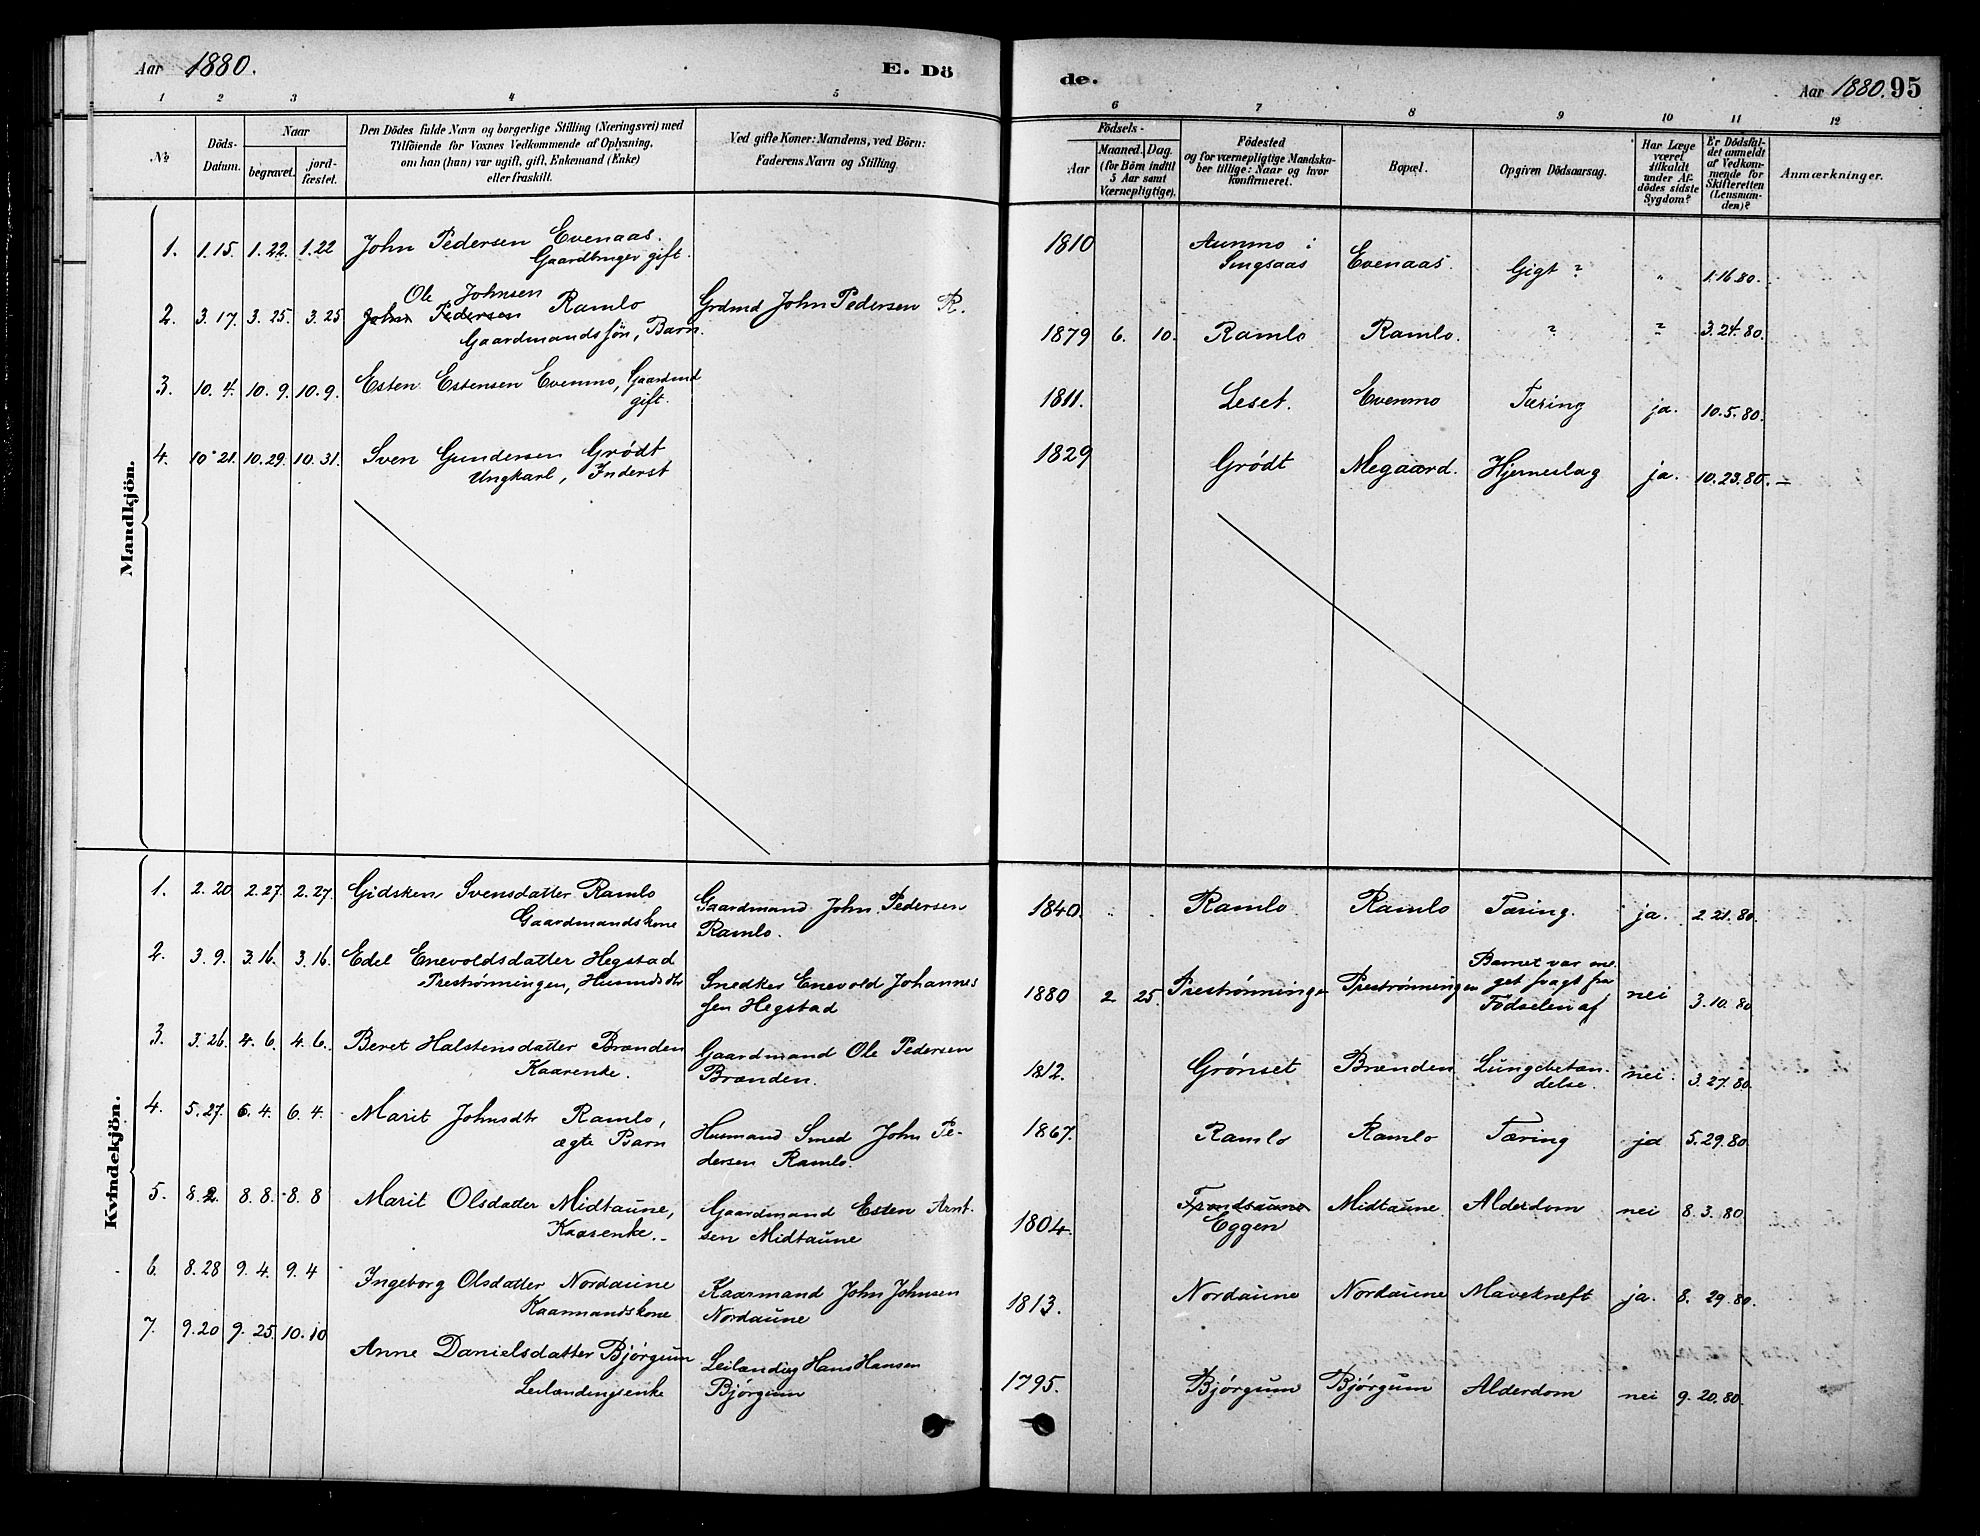 Aar 1880. E. Dö de. Aar 1880. 95
1 2 3 4 5 6 7 8 9 10 11 12
No
Döds-Datum.
Naar
begravet.
jord-fæstet.
Den Dödes fulde Navn og borgerlige Stilling (Næringsvei) med
Tilföiende for Voxnes Vedkommende af Oplysning,
om han (hun) var ugift, gift, Enkemand (Enke)
eller fraskilt.
Ved gifte Koner: Mandens, ved Börn:
Faderens Navn og Stilling.
Födsels-
Aar
Maaned. Dag.
(for Börn indtil
5 Aar samt
Værnepligtige).
Födested
og for værnepligtige Mandska-
ber tillige: Naar og hvor
Konfirmeret.
Bopæl.
Opgiven Dödsaarsag.
Har Læge
været
tilkaldt
under Af-
dödes sidste
Sygdom?
Er Dödsfal-
det anmeldt
af Vedkom-
mende for
Skifteretten
(Lensman-
den)?
Anmærkninger.
Mandkjön.
1. 1.15. 1.22. 1.22 John Pedersen Evenaas. 1810 Aunmo i
Gaardbruger gift. Singsaas Evenaas. Gigt ? " 1.16.80.
Ole Johnsen
2. 3.17. 3.25. 3.25 John Pedersen Ramlo Grdmd John Pedersen R.
Gaardmandssön, Barn. 1879 6. 10. Ramlo Ramlo. ? ? 3.24.80.
3. 10.4. 10.9. 10.9. Esten Estensen Evenmo, Gaardmd 1811. Leset. Evenmo Tæring ja. 10.5.80.
gift.
4. 10.21. 10.29. 10.31. Sven Gundersen Grødt 1829 Grødt Megaard. Hjerneslag ja. 10.23.80. —
Ungkarl, Inderst
Kvindekjön.
1. 2.20 2.27. 2.27. Gidsken Svensdatter Ramlo Gaardmand John Pedersen 1840. " " Ramlo Ramlo Tæring. ja. 2.21.80.
Gaardmandskone Ramlo.
2. 3.9. 3.16. 3.16. Edel Enevoldsdatter Hegstad Barnet var me-
Prestrønningen, Husmdsdtr Snedker Enevold Johannes 1880 2. 25. Prestrønningen Prestrønningen get svagt fra nei 3.10.80
sen Hegstad Födselen af
3. 3.26. 4.6. 4.6. Beret Halstensdatter Brænden Gaardmand Ole Pedersen 1812. Grønset Brænden Lungebetæn- nei. 3.27.80
Kaarenke. Brænden. delse.
4. 5.27. 6.4. 6.4. Marit Johnsdtr Ramlo, Husmand Smed John Pe- 1867. Ramlo Ramlo Tæring ja 5.29.80.
ægte Barn dersen Ramlo.
5. 8.2. 8.8. 8.8 Marit Olsdatter Midtaune, Gaardmand Esten Arnt- 1804. Midtaune Alderdom nei 8.3.80
Kaarenke. sen Midtaune Eggen
6. 8.28 9.4. 9.4 Ingeborg Olsdatter Nordaune Kaarmand John Johnsen 1813. Nordaune Nordaune Mavekræft ja. 8.29.80.
Kaarmandskone Nordaune
7. 9.20 9.25. 10.10 Anne Danielsdatter Bjørgum Leilænding Hans Hansen 1795. Bjørgum Bjørgum Alderdom nei 9.20.80.
Leilændingsenke Bjørgum